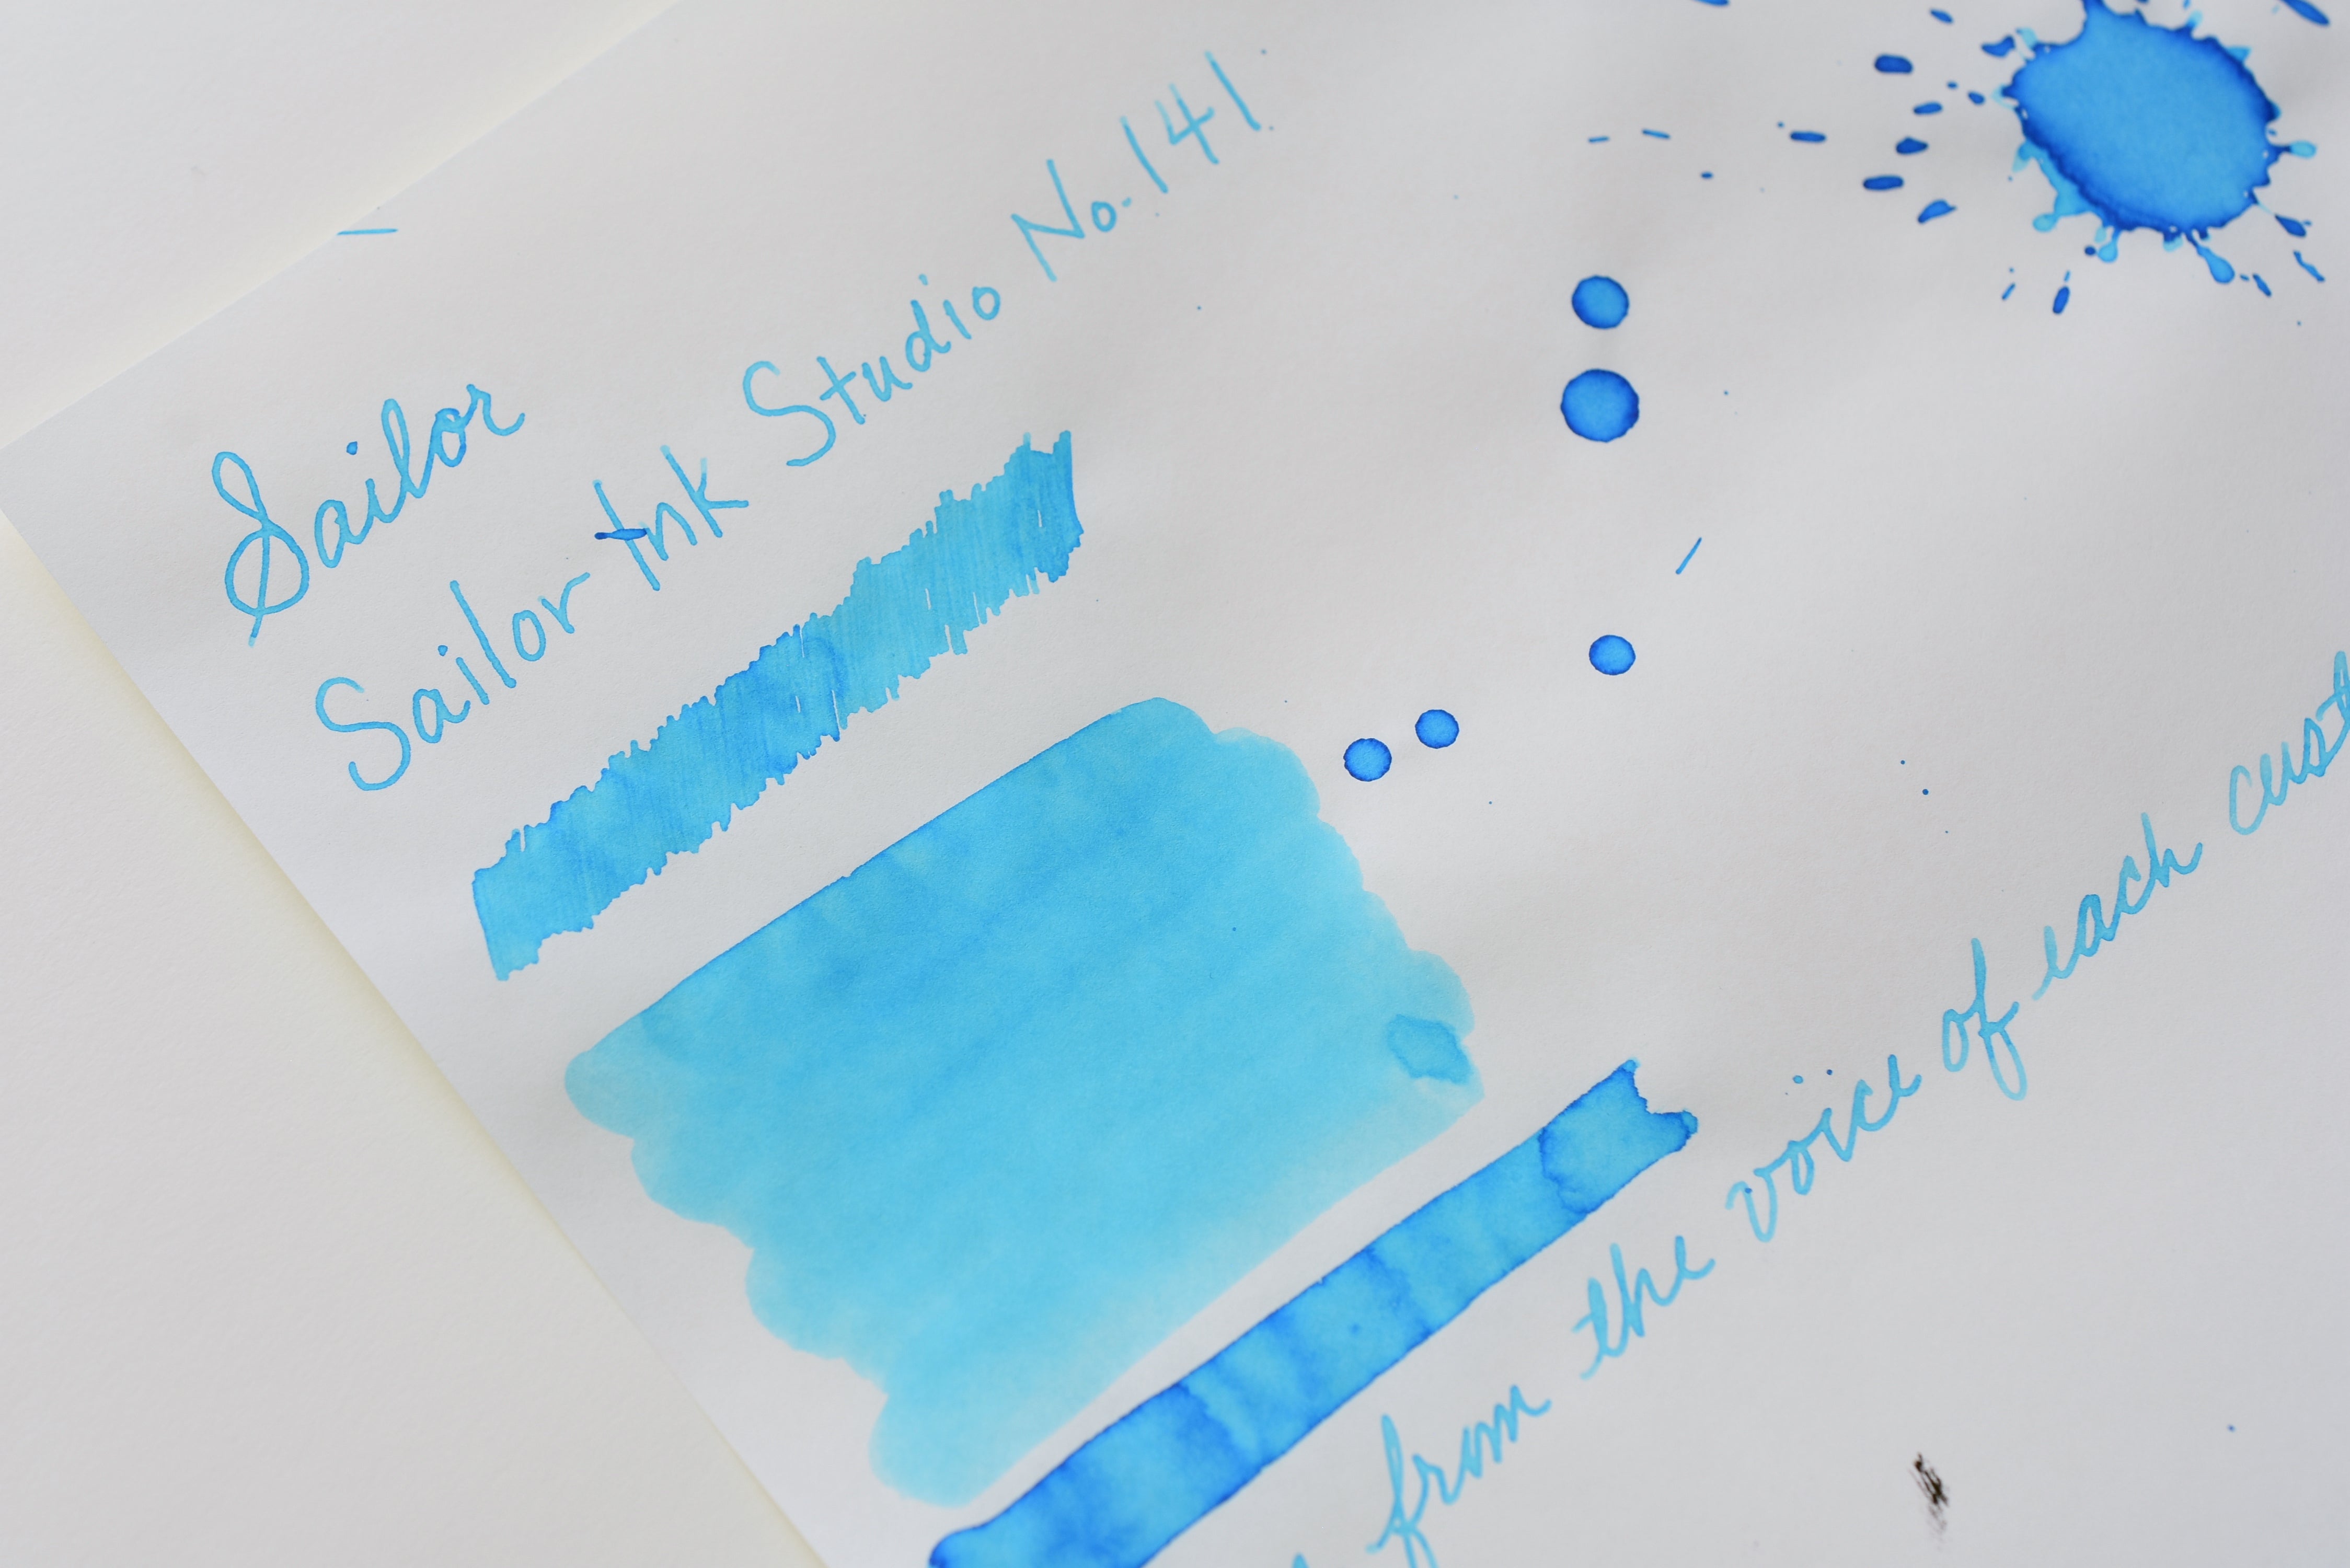 Sailor
Sailor Ink Studio No. 141
from the voice of each